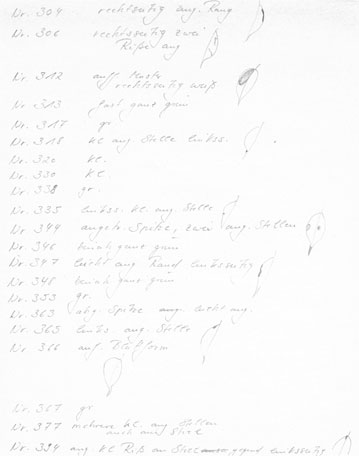 Nr. 304 rechtsseitig ang. Rand
Nr. 306 rechtsseitig zwei
Risse ang
Nr. 312 auff.
rechtsseitig weiß
Nr. 313 fast ganz grün
Nr. 317 gr.
Nr. 318 kl ang. Stelle linkss.
Nr. 320 kl.
Nr. 330 kl.
Nr. 338 gr.
Nr. 335 linkss. kl. ang. Stelle
Nr. 344 Spitze, zwei ang. Stellen
Nr. 346 beinah ganz grün
Nr. 347 leicht ang Rand linksseitig
Nr. 348 beinah ganz grün
Nr. 353 gr.
Nr. 363 Spitze ang. leicht ang.
Nr. 365 links. ang. Stelle
Nr. 366 auf. Blattform
Nr. 367 gr
Nr. 377 mehrere kl. ang. Stellen
auch am Stiel
Nr. 394 ang. kl Riß an gegend linksseitig